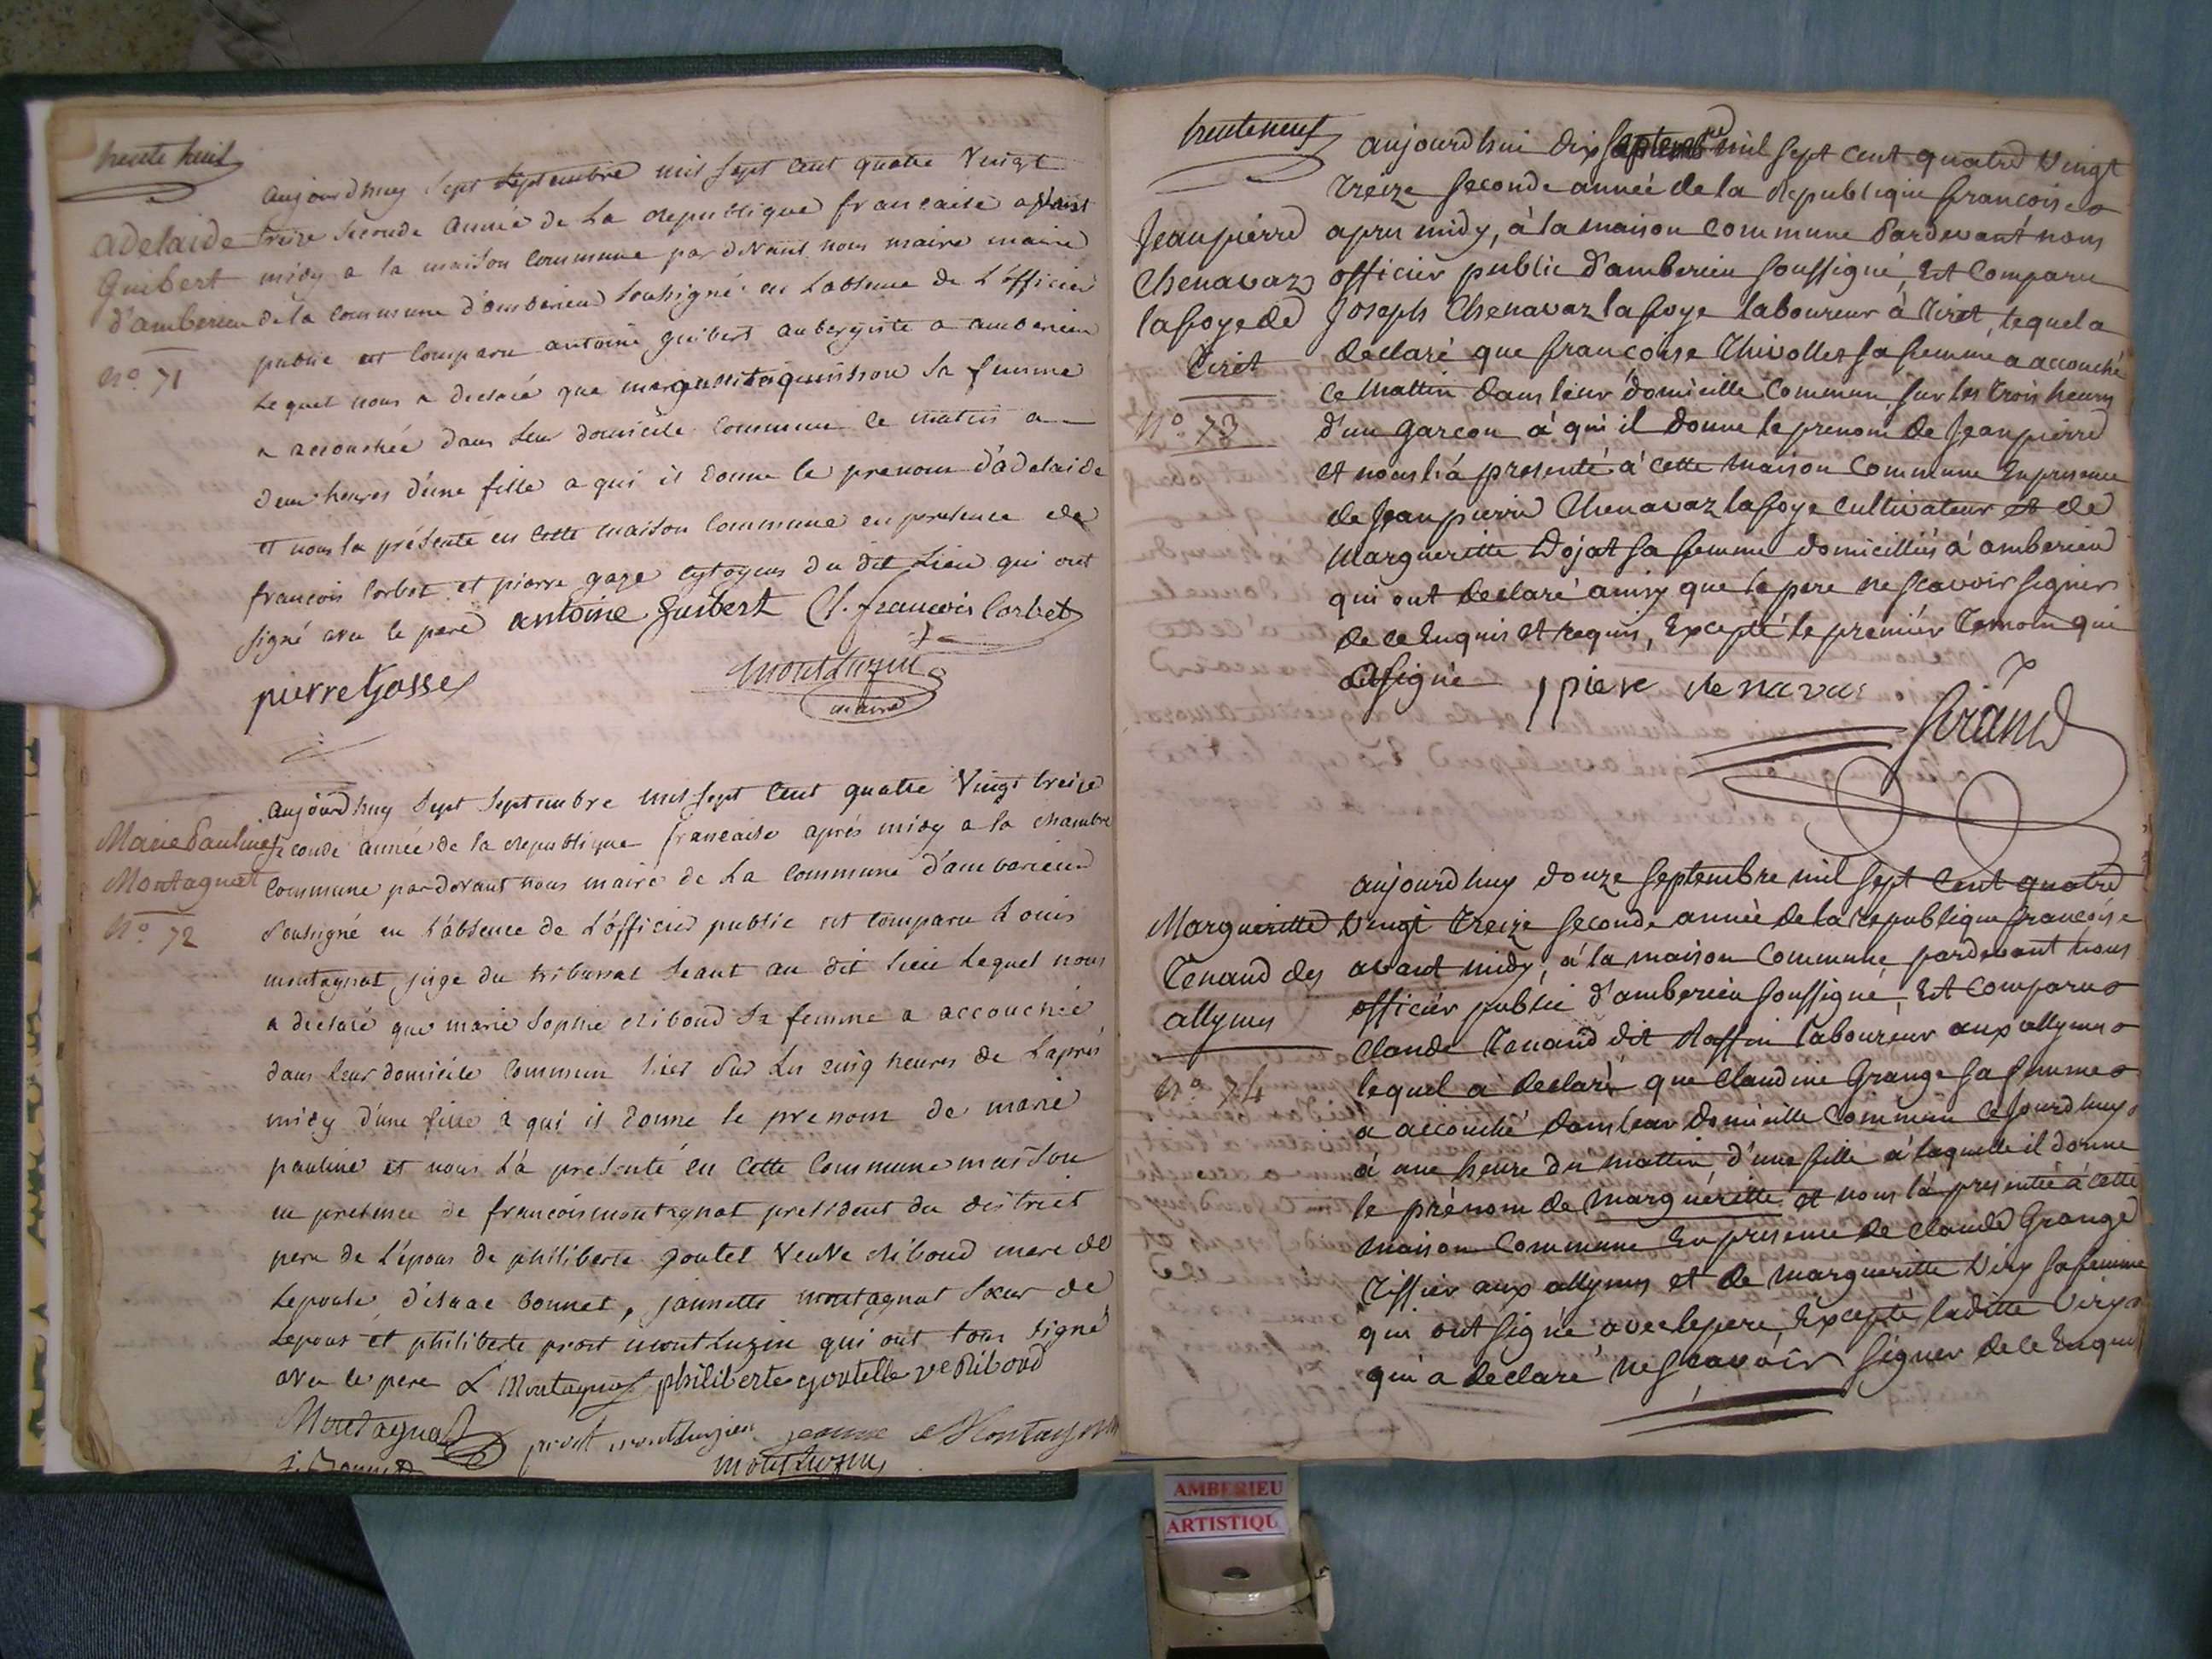 trente huit
adelaide
Guibert
d'amberieu
n° 71
aujourdhuy sept septembre mil sept cent quatre vingt
treize seconde année de la republique francaise
midy a la maison commune par devant nous maire maire
de la commune d'amberieu soussigné en l'absence de l'officier
public est comparu antoine guibert aubergiste a amberieu
lequel nous a declaré que sa femme
a accouchée dans leur domicile commun ce matin a
deux heures d'une fille a qui il donne le prenom d'adelaide
et nous la présenté en cette maison commune en presence de
francois corbet et pierre gaze cytoyens du dit lieu qui ont
signé avec le pere antoine guibert Cl. francois Corbet
pierre Gosse montluzin
maire
Marie Pauline
Montagnat
n° 72
aujourdhuy sept septembre mil sept cent quatre vingt treize
seconde année de la republique francaise aprés midy a la chambre
commune par devant nous maire de la commune d'amberieu
soussigné en l'absence de l'officier public est comparu Louis
montagnat juge du tribunal seant au dit lieu lequel nous
a declaré que marie sophie riboud sa femme a accouchée
dans leur domicile commun hier sur les cinq heures de l'aprés
midy d'une fille a qui il donne le prenom de marie
pauline et nous l'a présenté en cette commune maison
en presence de francois montagnat president du district
pere de l'épous de philiberte goutel veuve riboud mere de
lepouse d'isaac bonnet, jannette montagnat sœur de
lepous et philiberte prost montluzin qui ont tous signé
avec le pere L Montagnat philiberte goutelle ve Riboud
Montagnat prost montluzin jeanne Montagnat
montluzin
trente neuf
Jean pierre
Chenavaz
lafoye de
Tiret
n° 73
aujourdhui dix septembre mil sept cent quatre vingt
treize seconde année de la republique francoise
apres midy, à la maison commune pardevant nous
officier public d'amberieu soussigné, Est comparu
Joseph Chenavaz lafoye laboureur à Tiret, lequel a
declaré que francoise Thivollet sa femme a accouché
ce mattin dans leur domicille commun, sur les trois heures
d'un garcon à qui il donne le prenom de Jean pierre
et nous l'a presenté à cette maison commune En presence
de Jean pierre Chenavaz lafoye cultivateur et de
Margueritte Dojat sa femme domicilliés à amberieu
qui ont declaré ainsy que le pere ne scavoir signer
de ce Enquis et requis, Excepté le premier Temoin qui
a signé piere chenavas
Girand
Margueritte
Tenand des
allymes
n° 74
aujourdhuy douze septembre mil sept cent quatre
vingt treize seconde année de la republique francoise
avant midy, à la maison commune pardevant nous
officier public d'amberieu soussigné, Est comparu
Claude Tenand dit Raffin laboureur aux allymes
lequel a declaré que Claudine Grange sa femme
a accouché dans leur domicille commun cejourdhuy
à une heure du mattin, d'une fille à laquelle il donne
le prénom de marguéritte et nous l'à presentée à cette
maison commune En presence de Claude Grange
Tissier aux allymes et de margueritte Véry sa femme
qui ont signé avec le pere, Excepté laditte Véry
qui a declaré ne scavoir signer de ce Enquis
AMBERIEU
ARTISTIQU